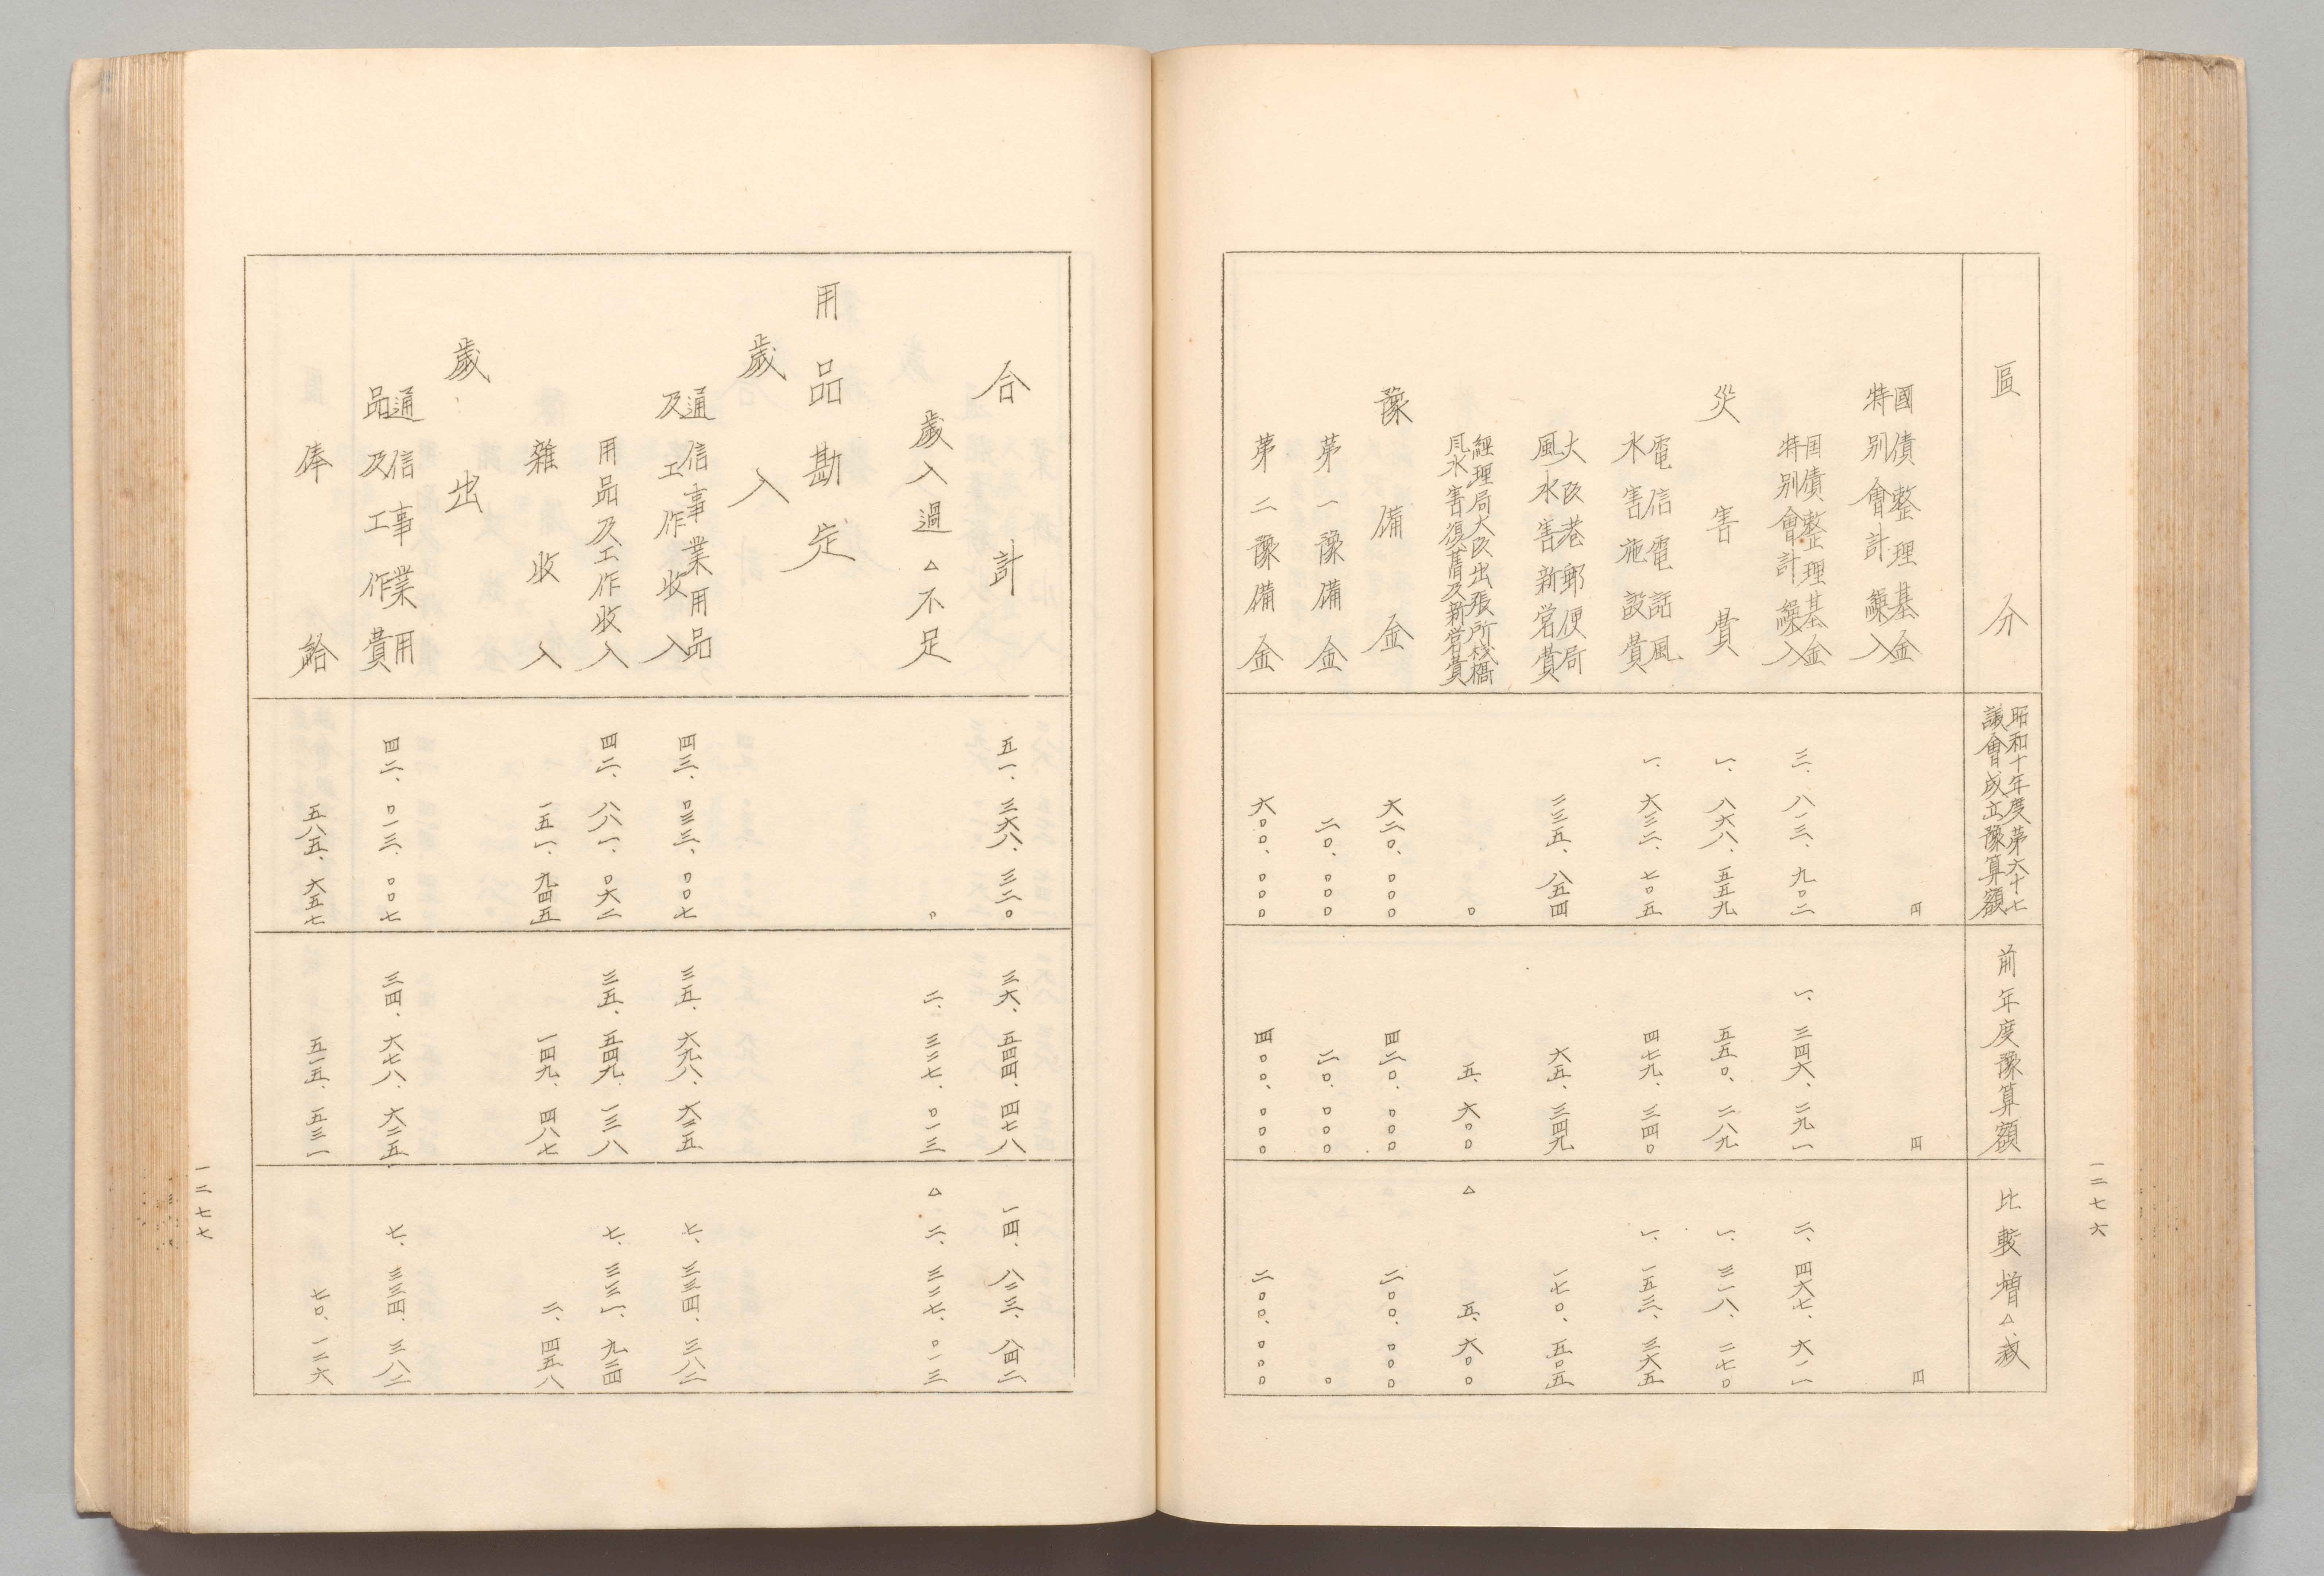 一二七六
區分
昭和十年度第六十七
議會成立豫算額
前年度豫算額
比較增△減
國債整理基金
特別會計繰入
四
四
四
国債整理基金
特別會計繰入
三、八一三、九〇二
一、三四六、二九一
二、四六七、六一一
災害費
一、八六八、五五九
五五〇、二八九
一、三一八、二七〇
電信電話風
水害施設費
一、六三二、七〇五
四七九、三四〇
一、一五三、三六五
大阪港郵便局
風水害新営費
二三五、八五四
六五、三四九
一七〇、五〇五
經理局大阪出張所桟橋
風水害復舊及新営費
〇
五、六〇〇
△五、六〇〇
豫備金
六二〇、〇〇〇
四二〇、〇〇〇
二〇〇、〇〇〇
第一豫備金
二〇、〇〇〇
二〇、〇〇〇
〇
第二豫備金
六〇〇、〇〇〇
四〇〇、〇〇〇
二〇〇、〇〇〇
合計
五一、三六八、三二〇
三六、五四四、四七八
一四、八二三、八四二
歲入過△不足
〇
二、三二七、〇一三
△二、三二七、〇一三
用品勘定
歲入
通信事業用品
及工作收入
四三、〇三三、〇〇七
三五、六九八、六二五
七、三三四、三八二
用品及工作收入
四二、八八一、〇六二
三五、五四九、一三八
七、三三一、九二四
雜收入
一五一、九四五
一四九、四八七
二、四五八
歲出
通信事業用
品及工作費
四二、〇一三、〇〇七
三四、六七八、六二五
七、三三四、三八二
俸給
五八五、六五七
五一五、五三一
七〇、一二六
一二七七